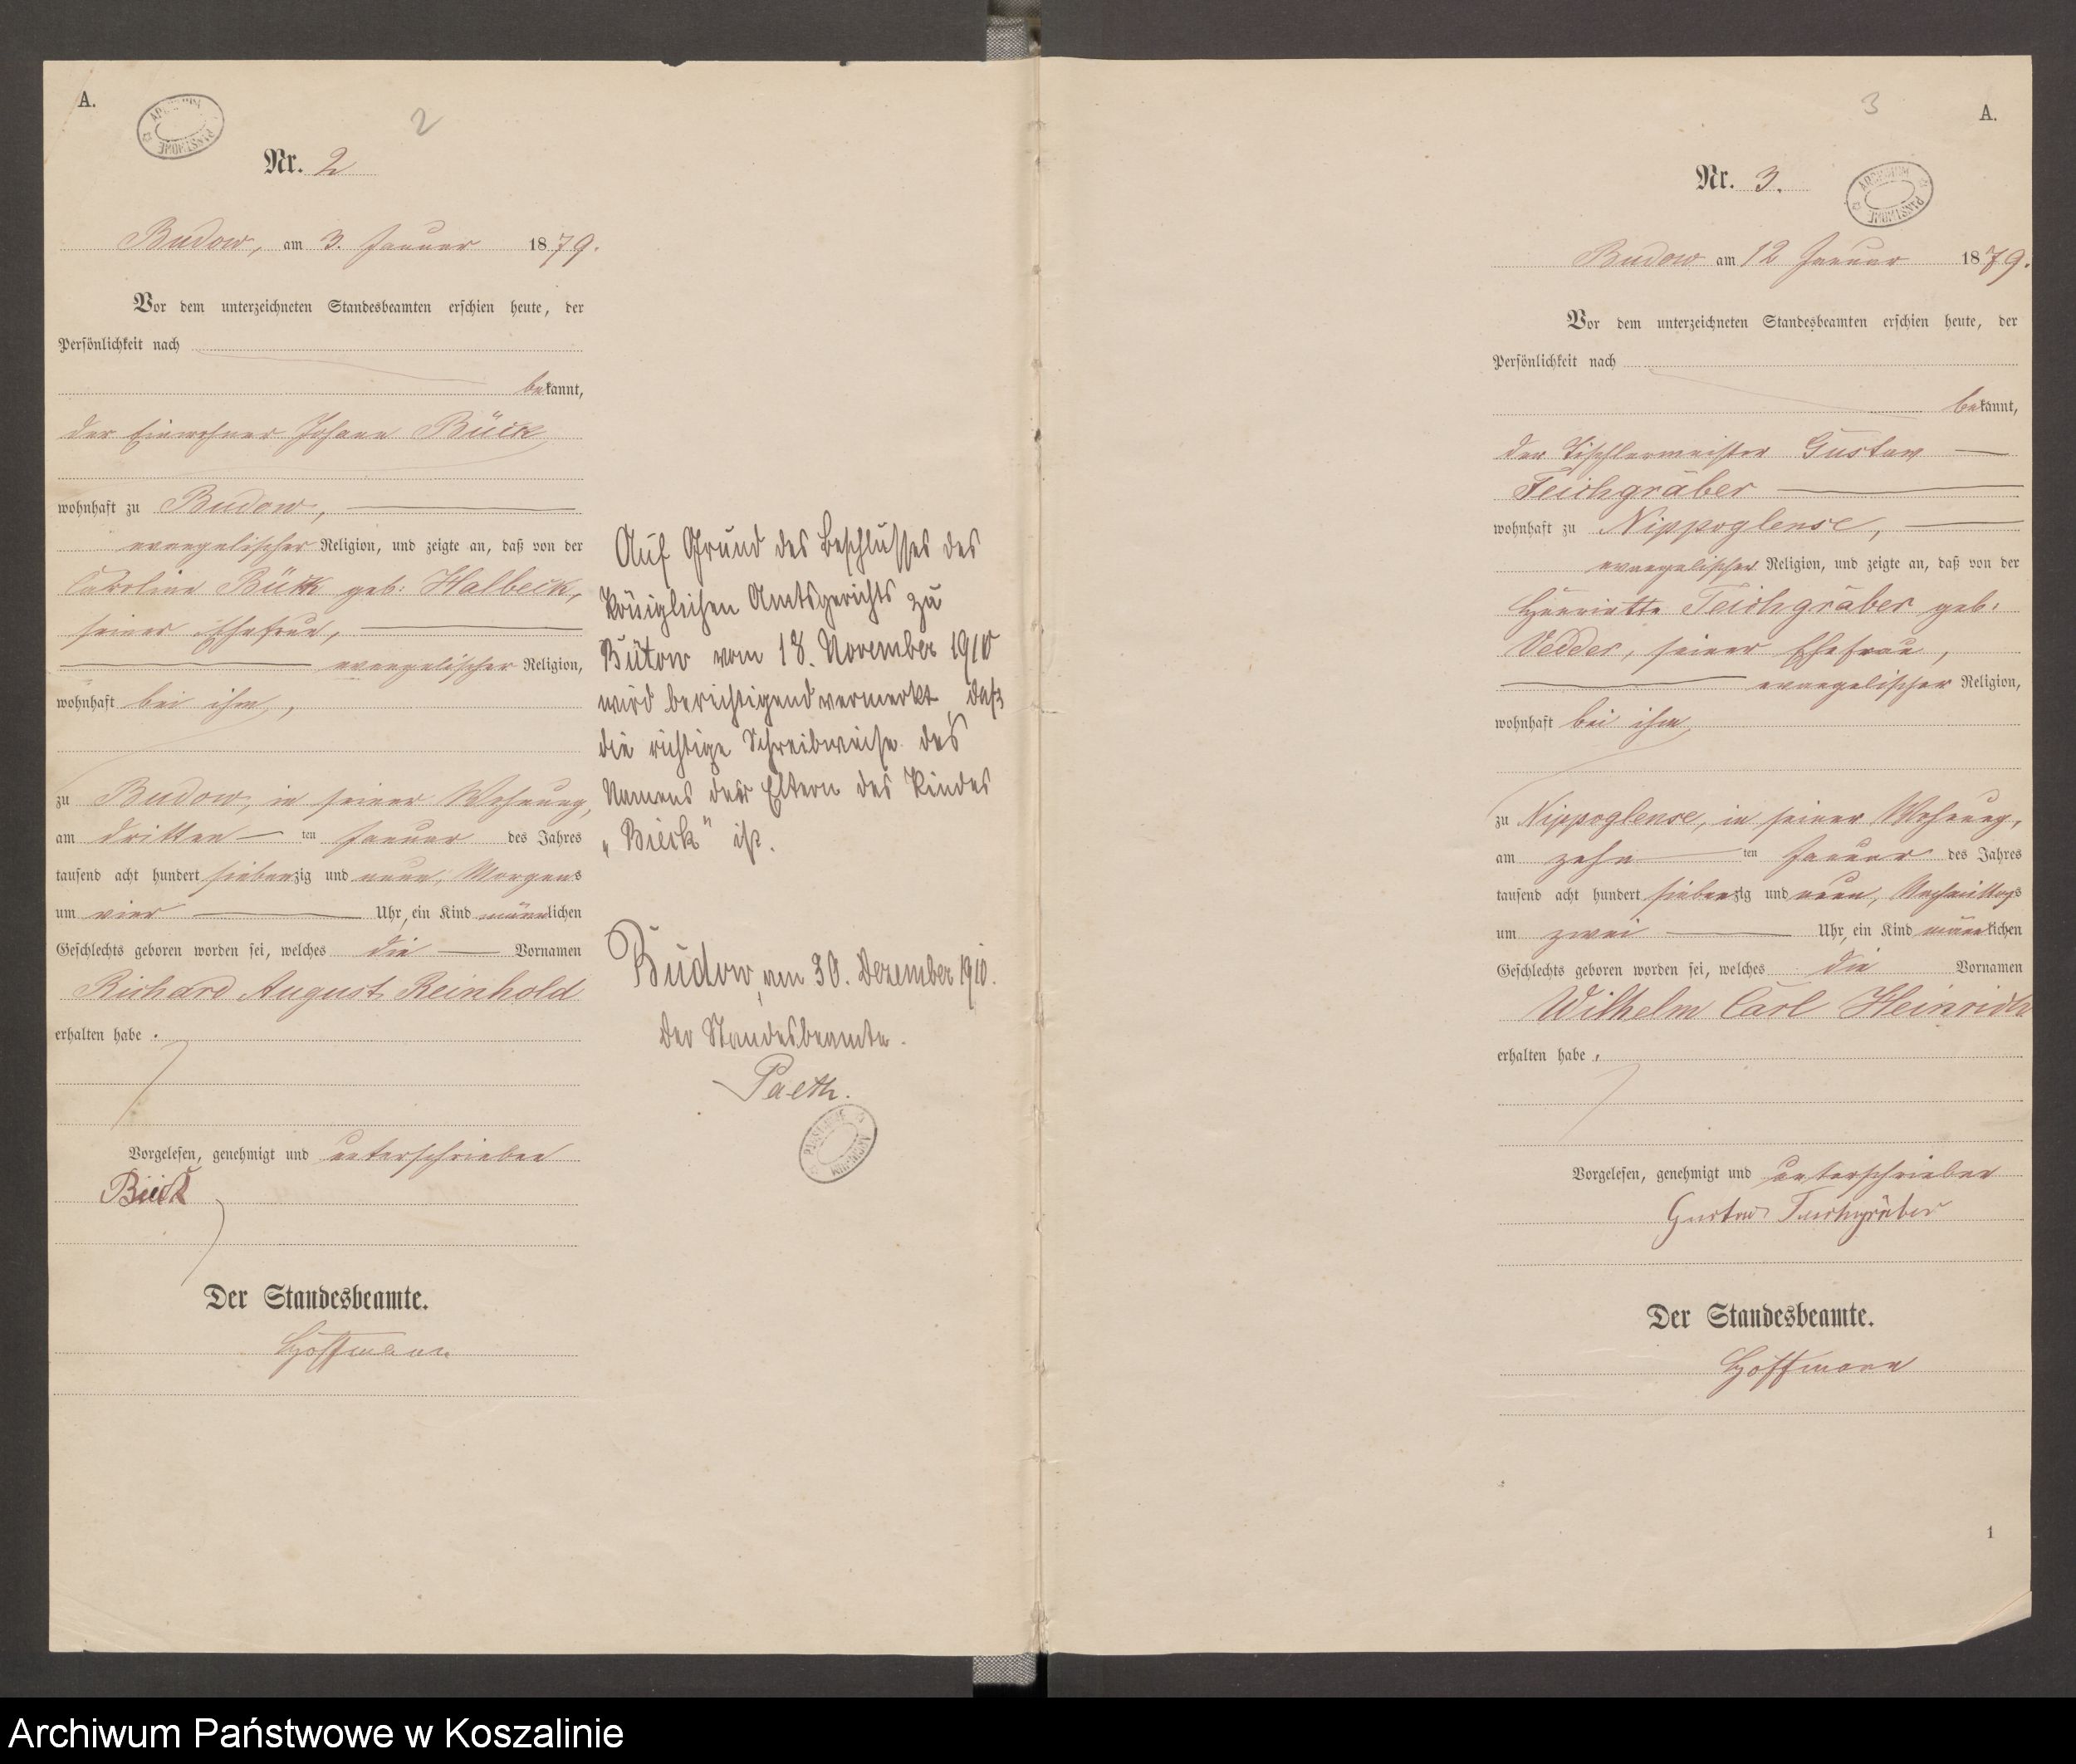 A.
2
Nr. 2
Budow, am 3. Januar 1879.
Vor dem unterzeichneten Standesbeamten erschien heute, der
Persönlichkeit nach
bekannt,
der Einwohner Johann Bück
wohnhaft zu Budow,
evangelischer Religion, und zeigte an, daß von der
Caroline Bück geb: Halbeck,
seiner Ehefrau,
evangelischer Religion,
wohnhaft bei ihm,
zu Budow, in seiner Wohnung,
am dritten ten Januar des Jahres
tausend acht hundert siebenzig und neun, Morgens
um vier Uhr, ein Kind männlichen
Geschlechts geboren worden sei, welches die Vornamen
Richard August Reinhold
erhalten habe.
Vorgelesen, genehmigt und unterschrieben
Bieck
Der Standesbeamte.
Hoffmann
Auf Grund des Beschlusses des
Königlichen Amtsgerichts zu
Bütow vom 18. November 1910
wird berichtigend vermerkt, daß
die richtige Schreibweise des
Namens der Eltern des Kindes
„Bieck" ist.
Budow, am 30. Dezember 1910.
Der Standesbeamte.
Paeth.
3
A.
Nr. 3.
ARCHIWUM PAŃSTWOWE
Budow am 12 Januar 1879.
Vor dem unterzeichneten Standesbeamten erschien heute, der
Persönlichkeit nach
bekannt,
der Tischlermeister Gustav
Teichgräber
wohnhaft zu Nippoglense,
evangelischer Religion, und zeigte an, daß von der
Henriette Teichgräber geb:
Vedder, seiner Ehefrau,
evangelischer Religion,
wohnhaft bei ihm
zu Nippoglense, in seiner Wohnung,
am zehn ten Januar des Jahres
tausend acht hundert siebenzig und neun, Nachmittags
um zwei Uhr, ein Kind männlichen
Geschlechts geboren worden sei, welches die Vornamen
Wilhelm Carl Heinrich
erhalten habe.
Vorgelesen, genehmigt und unterschrieben
Gustav Teichgräber
Der Standesbeamte.
Hoffmann
1
Archiwum Państwowe w Koszalinie